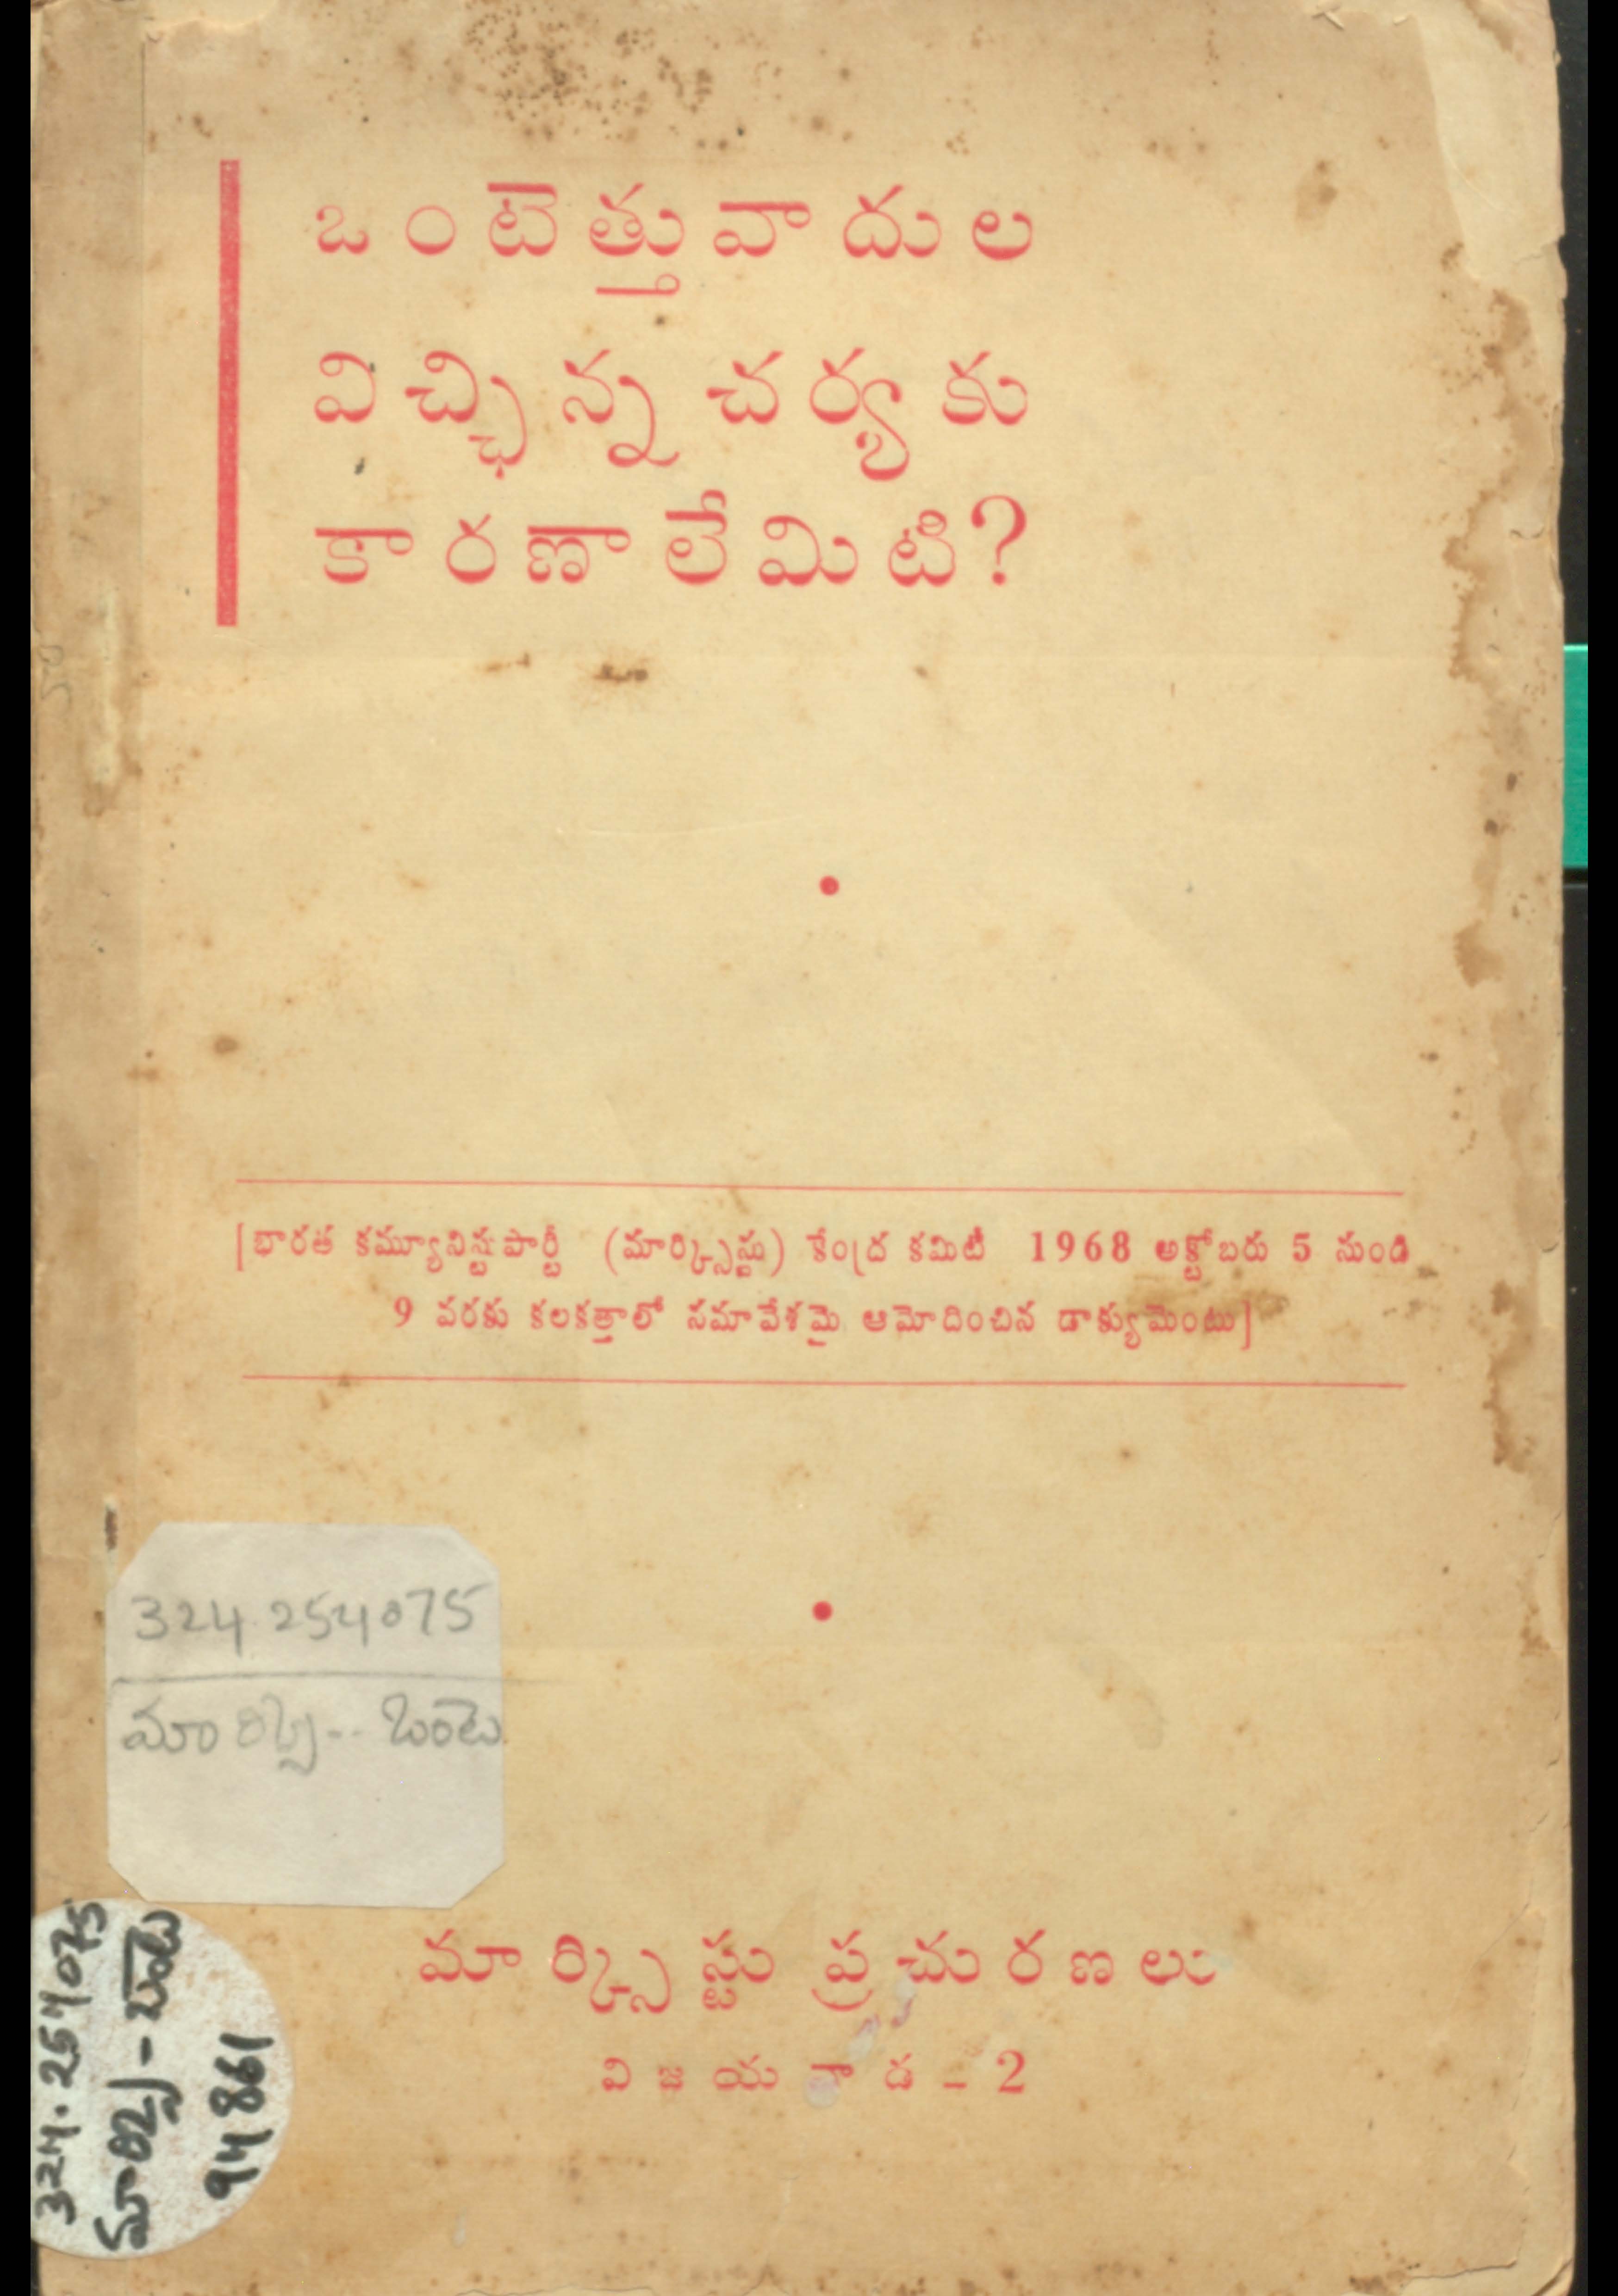 ఒంటెత్తువాదుల
విచ్ఛిన్నచర్యకు
కారణాలేమిటి?
[భారత కమ్యూనిస్టుపార్టీ (మార్క్సిస్టు) కేంద్ర కమిటీ 1968 అక్టోబరు 5 నుండి
9 వరకు కలకత్తాలో సమావేశమై ఆమోదించిన డాక్యుమెంటు]
324.254075
ఒంటె
మార్క్సిస్టు ప్రచురణలు
విజయవాడ - 2
324.254075
94861